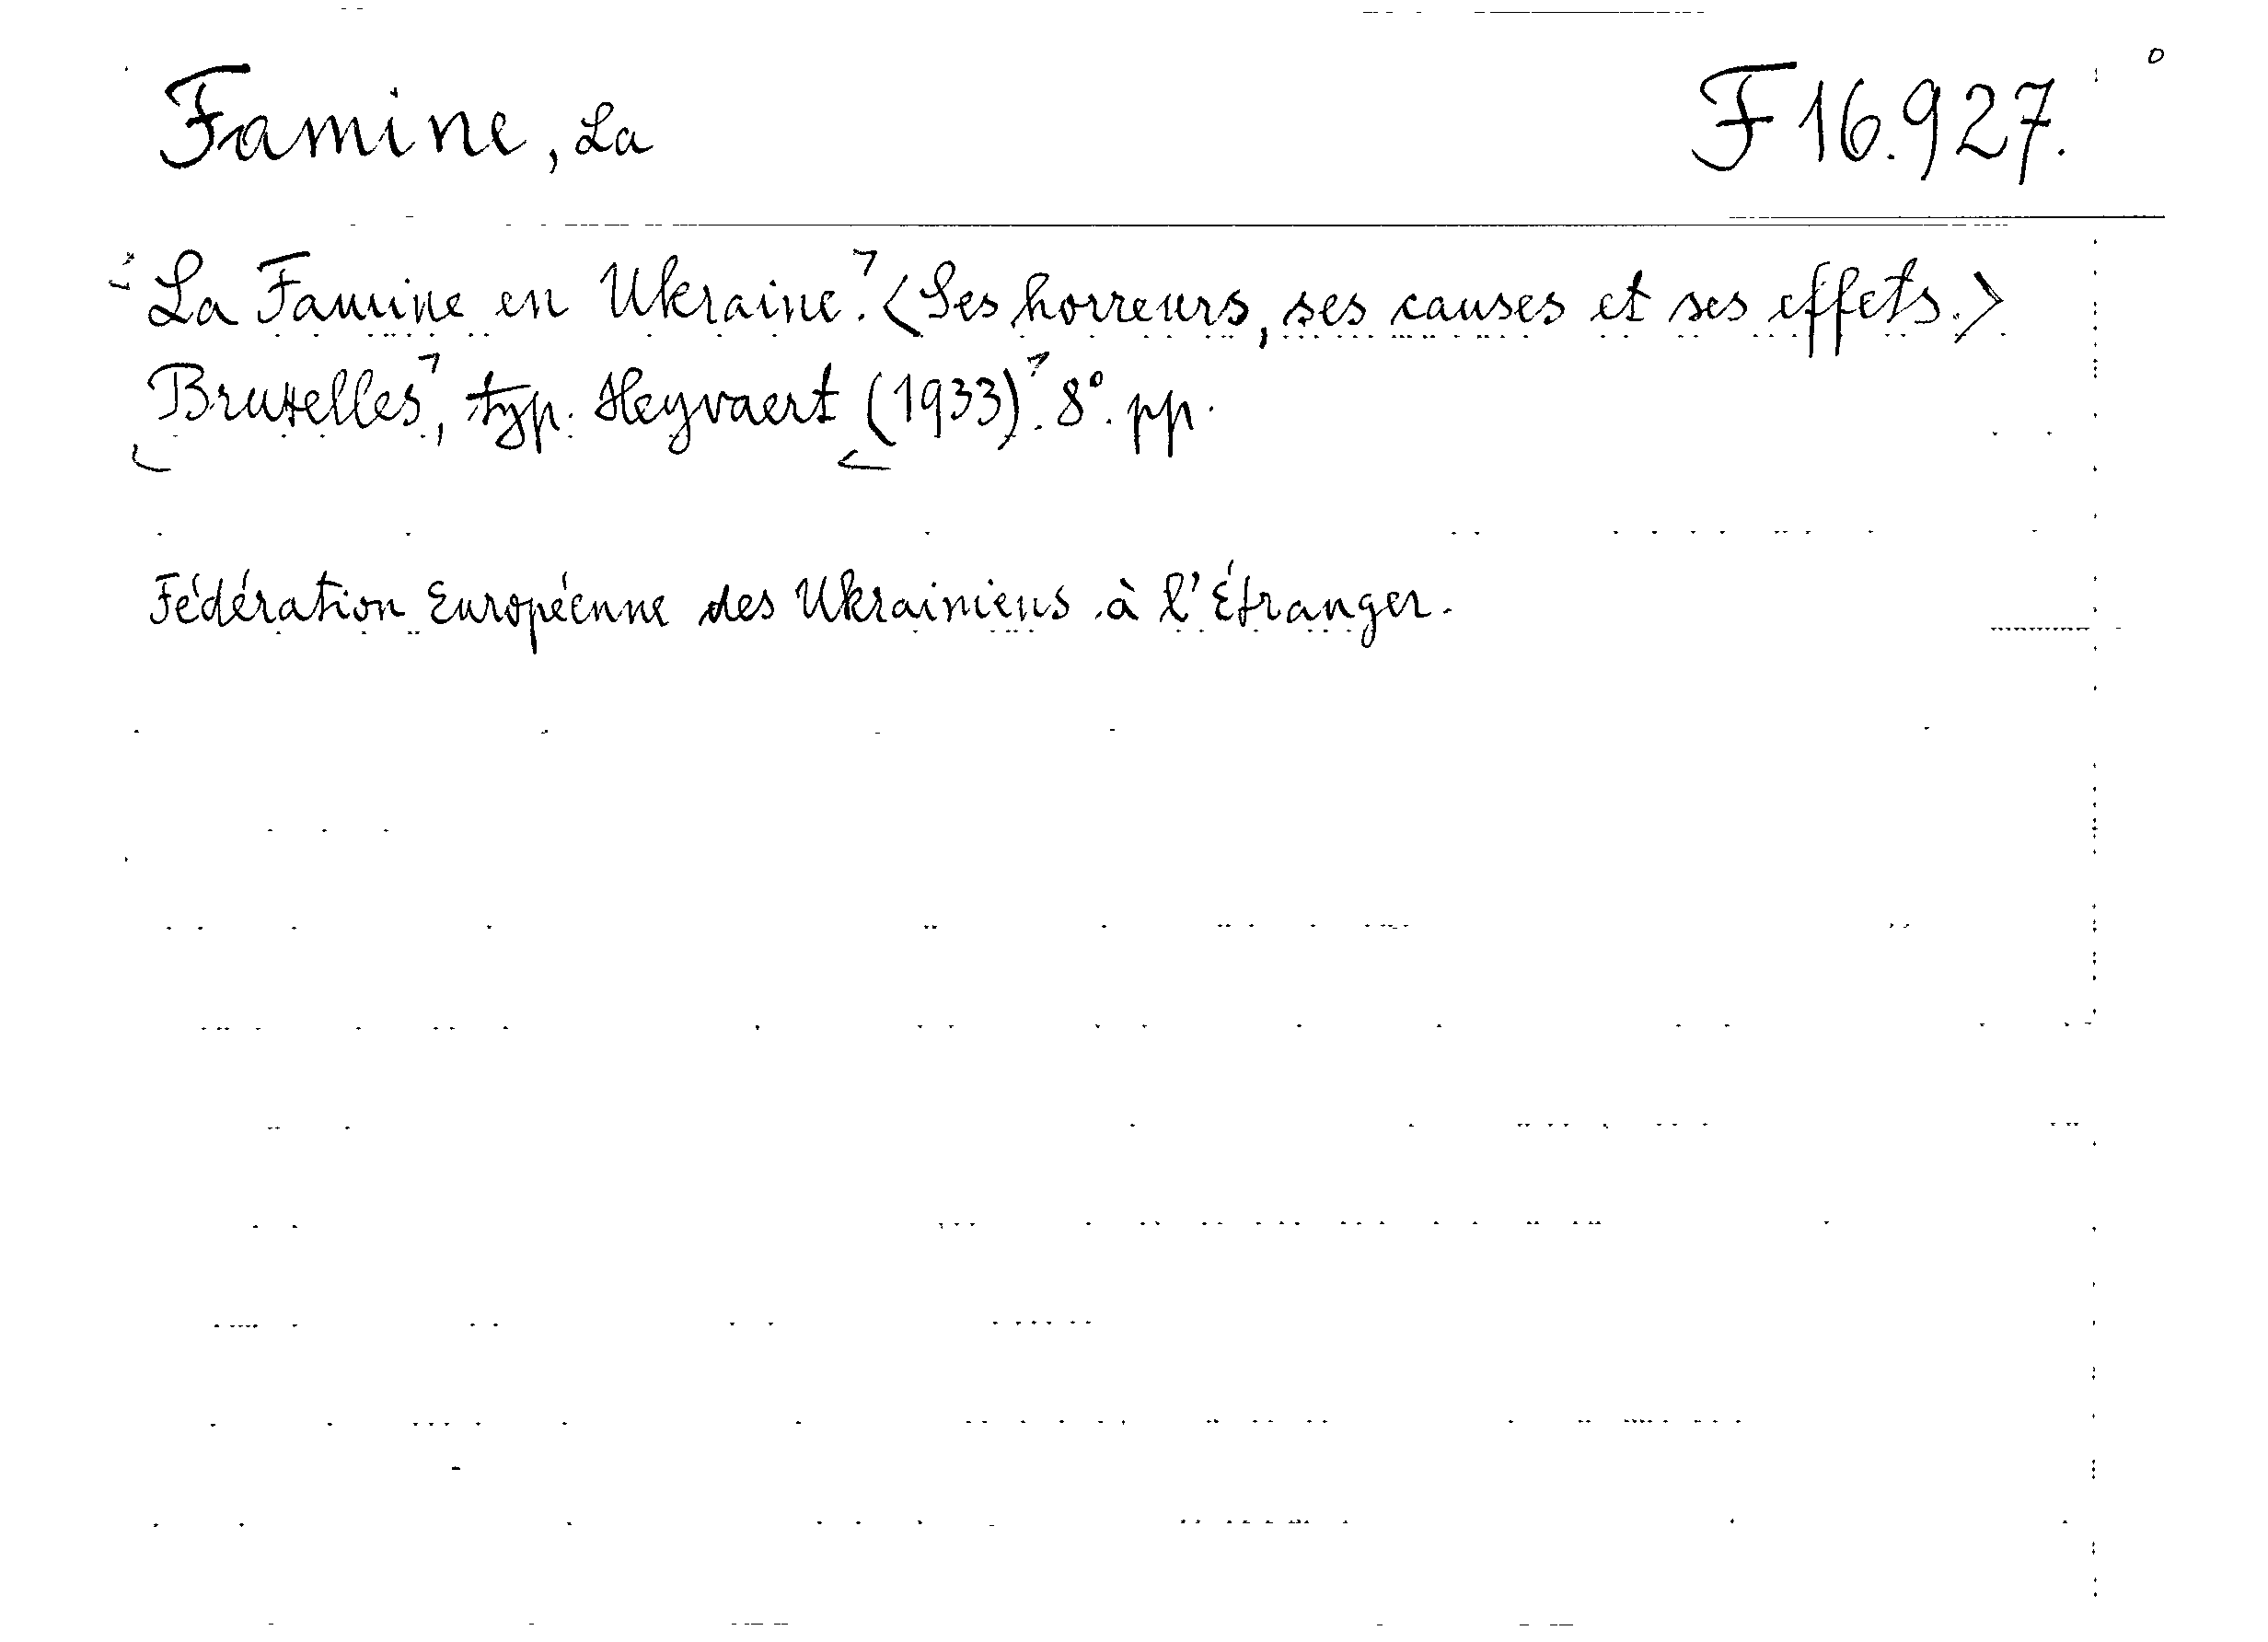 Famine, La
F 16.927.
La Famine en Ukraine. <Ses horreurs, ses causes et ses effets.>
Bruxelles, typ. Heyvaert (1933). 8°. pp.
Fédération Européenne des Ukrainiens à l'Étranger.